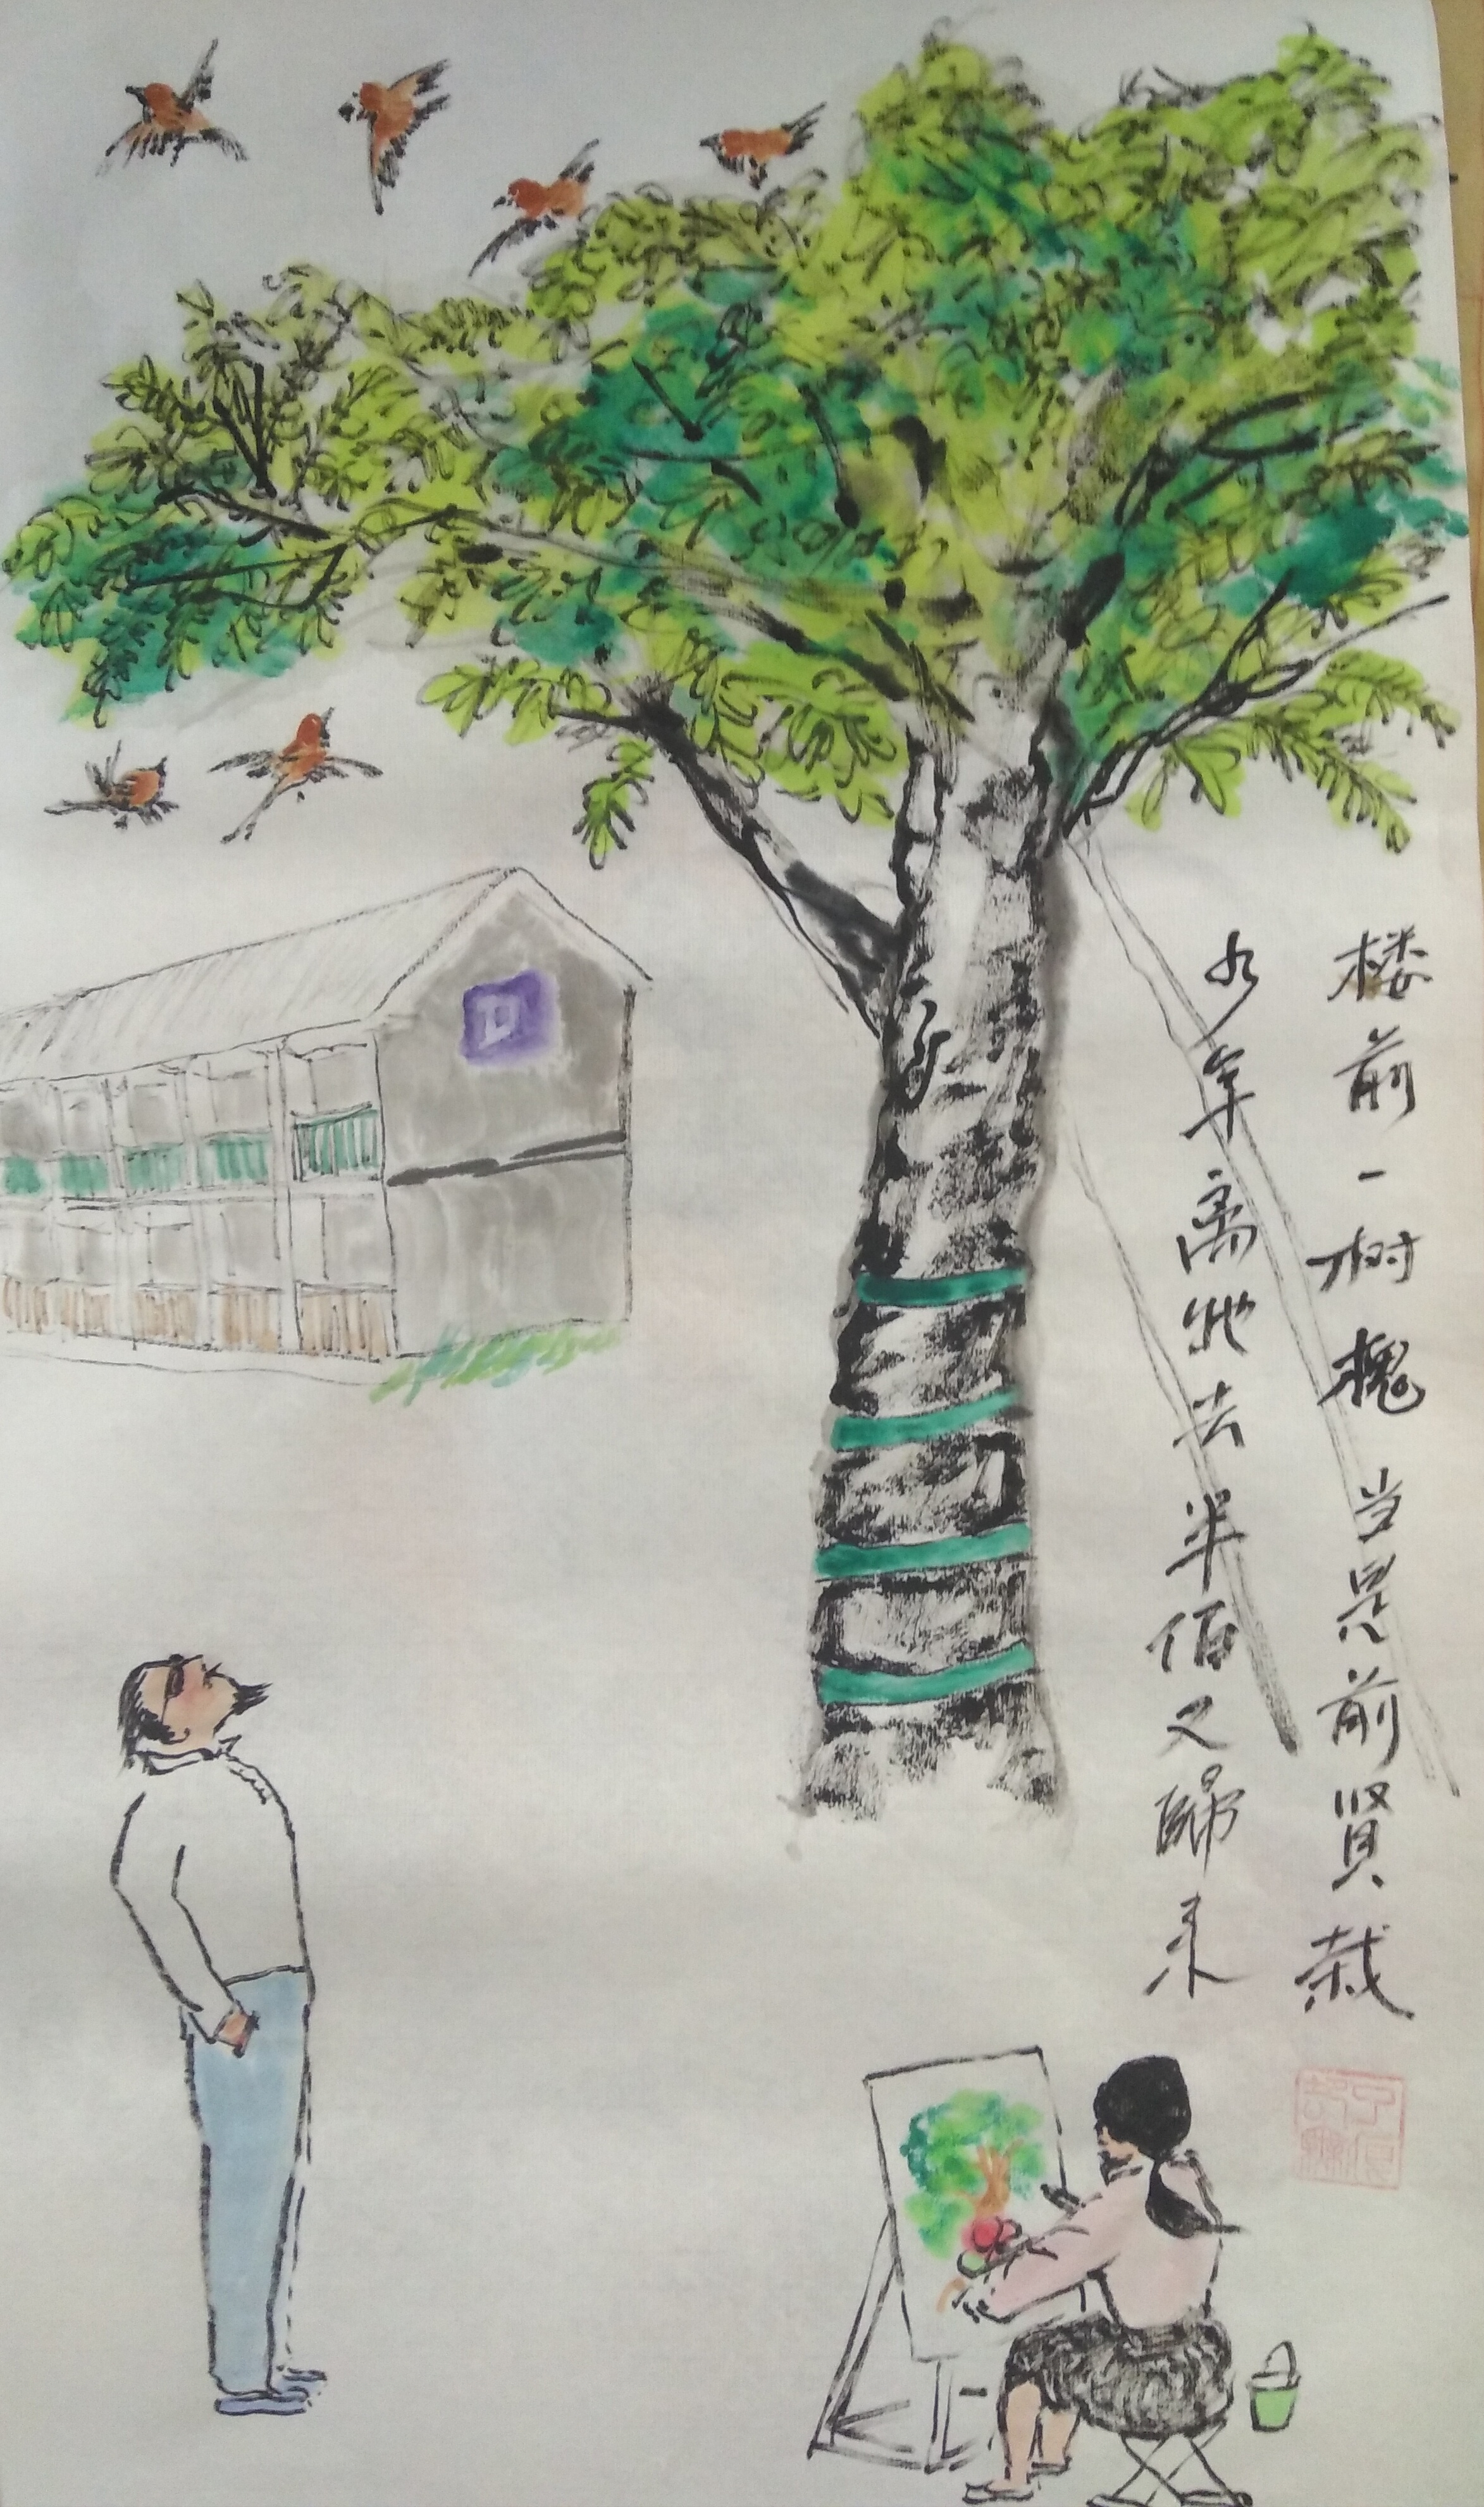 楼前一树槐当是前贤栽
少年离此去半佰又歸来